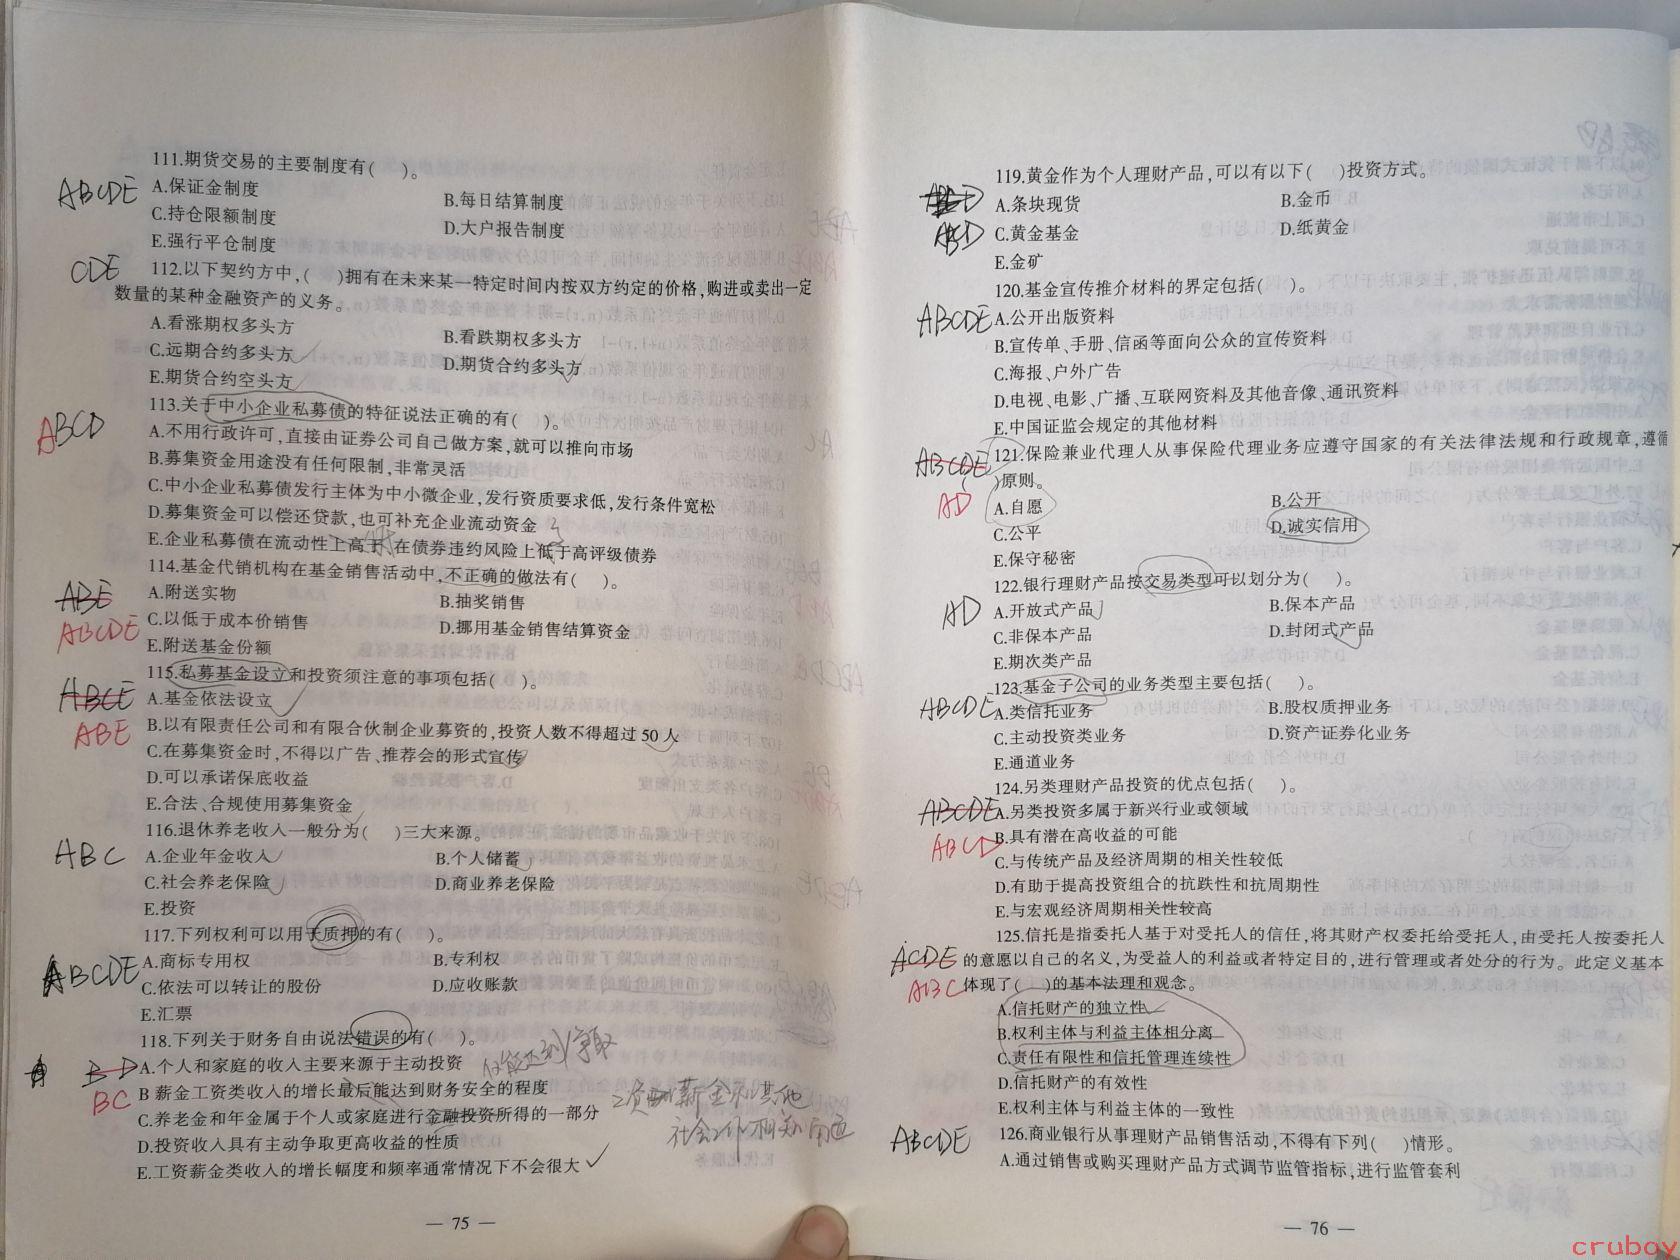 111.期货交易的主要制度有(　　)。
ABCDE
A.保证金制度　B.每日结算制度
C.持仓限额制度　D.大户报告制度
E.强行平仓制度
CDE
112.以下契约方中,(　　)拥有在未来某一特定时间内按双方约定的价格,购进或卖出一定
数量的某种金融资产的义务。
A.看涨期权多头方　B.看跌期权多头方
C.远期合约多头方　D.期货合约多头方
E.期货合约空头方
113.关于中小企业私募债的特征说法正确的有(　　)。
ABCD
A.不用行政许可,直接由证券公司自己做方案,就可以推向市场
B.募集资金用途没有任何限制,非常灵活
C.中小企业私募债发行主体为中小微企业,发行资质要求低,发行条件宽松
D.募集资金可以偿还贷款,也可补充企业流动资金
E.企业私募债在流动性上高于,在债券违约风险上低于高评级债券
114.基金代销机构在基金销售活动中,不正确的做法有(　　)。
ABE
A.附送实物　B.抽奖销售
ABCDE
C.以低于成本价销售　D.挪用基金销售结算资金
E.附送基金份额
115.私募基金设立和投资须注意的事项包括(　　)。
ABCE
A.基金依法设立
ABE
B.以有限责任公司和有限合伙制企业募资的,投资人数不得超过50人
C.在募集资金时,不得以广告、推荐会的形式宣传
D.可以承诺保底收益
E.合法、合规使用募集资金
116.退休养老收入一般分为(　　)三大来源。
ABC
A.企业年金收入　B.个人储蓄
C.社会养老保险　D.商业养老保险
E.投资
117.下列权利可以用于质押的有(　　)。
ABCDE
A.商标专用权　B.专利权
C.依法可以转让的股份　D.应收账款
E.汇票
118.下列关于财务自由说法错误的有(　　)。
BD
A.个人和家庭的收入主要来源于主动投资
BC
B 薪金工资类收入的增长最后能达到财务安全的程度
仅能达到
C.养老金和年金属于个人或家庭进行金融投资所得的一部分
D.投资收入具有主动争取更高收益的性质
E.工资薪金类收入的增长幅度和频率通常情况下不会很大
— 75 —
119.黄金作为个人理财产品,可以有以下(　　)投资方式。
A.条块现货　B.金币
ABCD
C.黄金基金　D.纸黄金
E.金矿
120.基金宣传推介材料的界定包括(　　)。
ABCDE
A.公开出版资料
B.宣传单、手册、信函等面向公众的宣传资料
C.海报、户外广告
D.电视、电影、广播、互联网资料及其他音像、通讯资料
E.中国证监会规定的其他材料
ABCDE
121.保险兼业代理人从事保险代理业务应遵守国家的有关法律法规和行政规章,遵循
(　　)原则。
AD
A.自愿　B.公开
C.公平　D.诚实信用
E.保守秘密
122.银行理财产品按交易类型可以划分为(　　)。
AD
A.开放式产品　B.保本产品
C.非保本产品　D.封闭式产品
E.期次类产品
123.基金子公司的业务类型主要包括(　　)。
ABCDE
A.类信托业务　B.股权质押业务
C.主动投资类业务　D.资产证券化业务
E.通道业务
124.另类理财产品投资的优点包括(　　)。
ABCDE
A.另类投资多属于新兴行业或领域
ABCD
B.具有潜在高收益的可能
C.与传统产品及经济周期的相关性较低
D.有助于提高投资组合的抗跌性和抗周期性
E.与宏观经济周期相关性较高
125.信托是指委托人基于对受托人的信任,将其财产权委托给受托人,由受托人按委托人
ACDE
的意愿以自己的名义,为受益人的利益或者特定目的,进行管理或者处分的行为。此定义基本
ABC
体现了(　　)的基本法理和观念。
A.信托财产的独立性
B.权利主体与利益主体相分离
C.责任有限性和信托管理连续性
D.信托财产的有效性
E.权利主体与利益主体的一致性
ABCDE
126.商业银行从事理财产品销售活动,不得有下列(　　)情形。
A.通过销售或购买理财产品方式调节监管指标,进行监管套利
— 76 —
cruboy